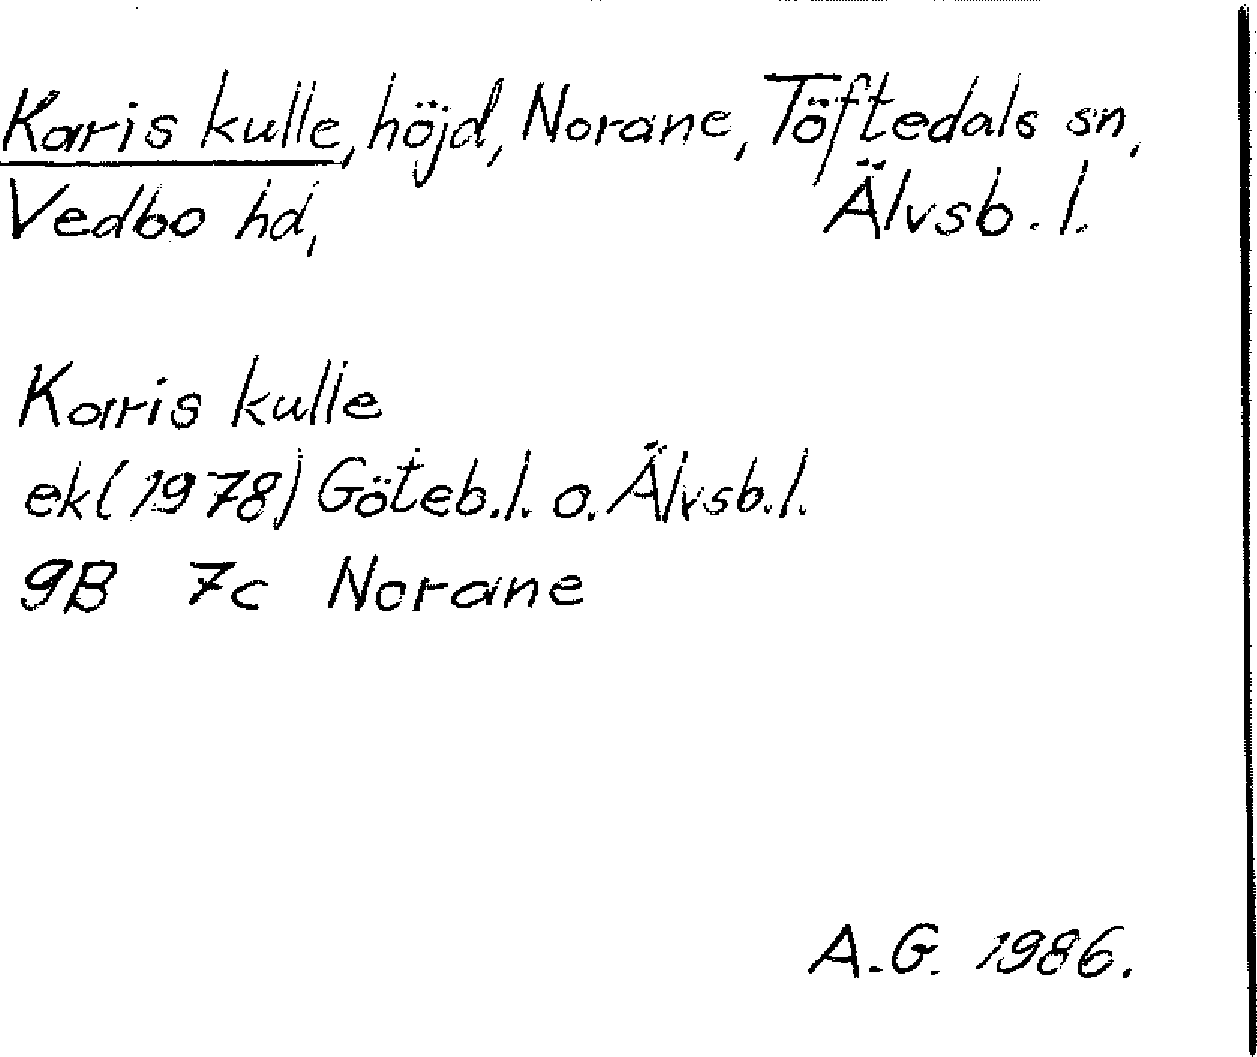 Karis kulle, höjd, Norane, Töftedals sn,
Vedbo hd, Älvsb. l.
Karis kulle
ek (1978) Göteb. l. o. Älvsb. l.
9B 7c Norane
A.G. 1986.